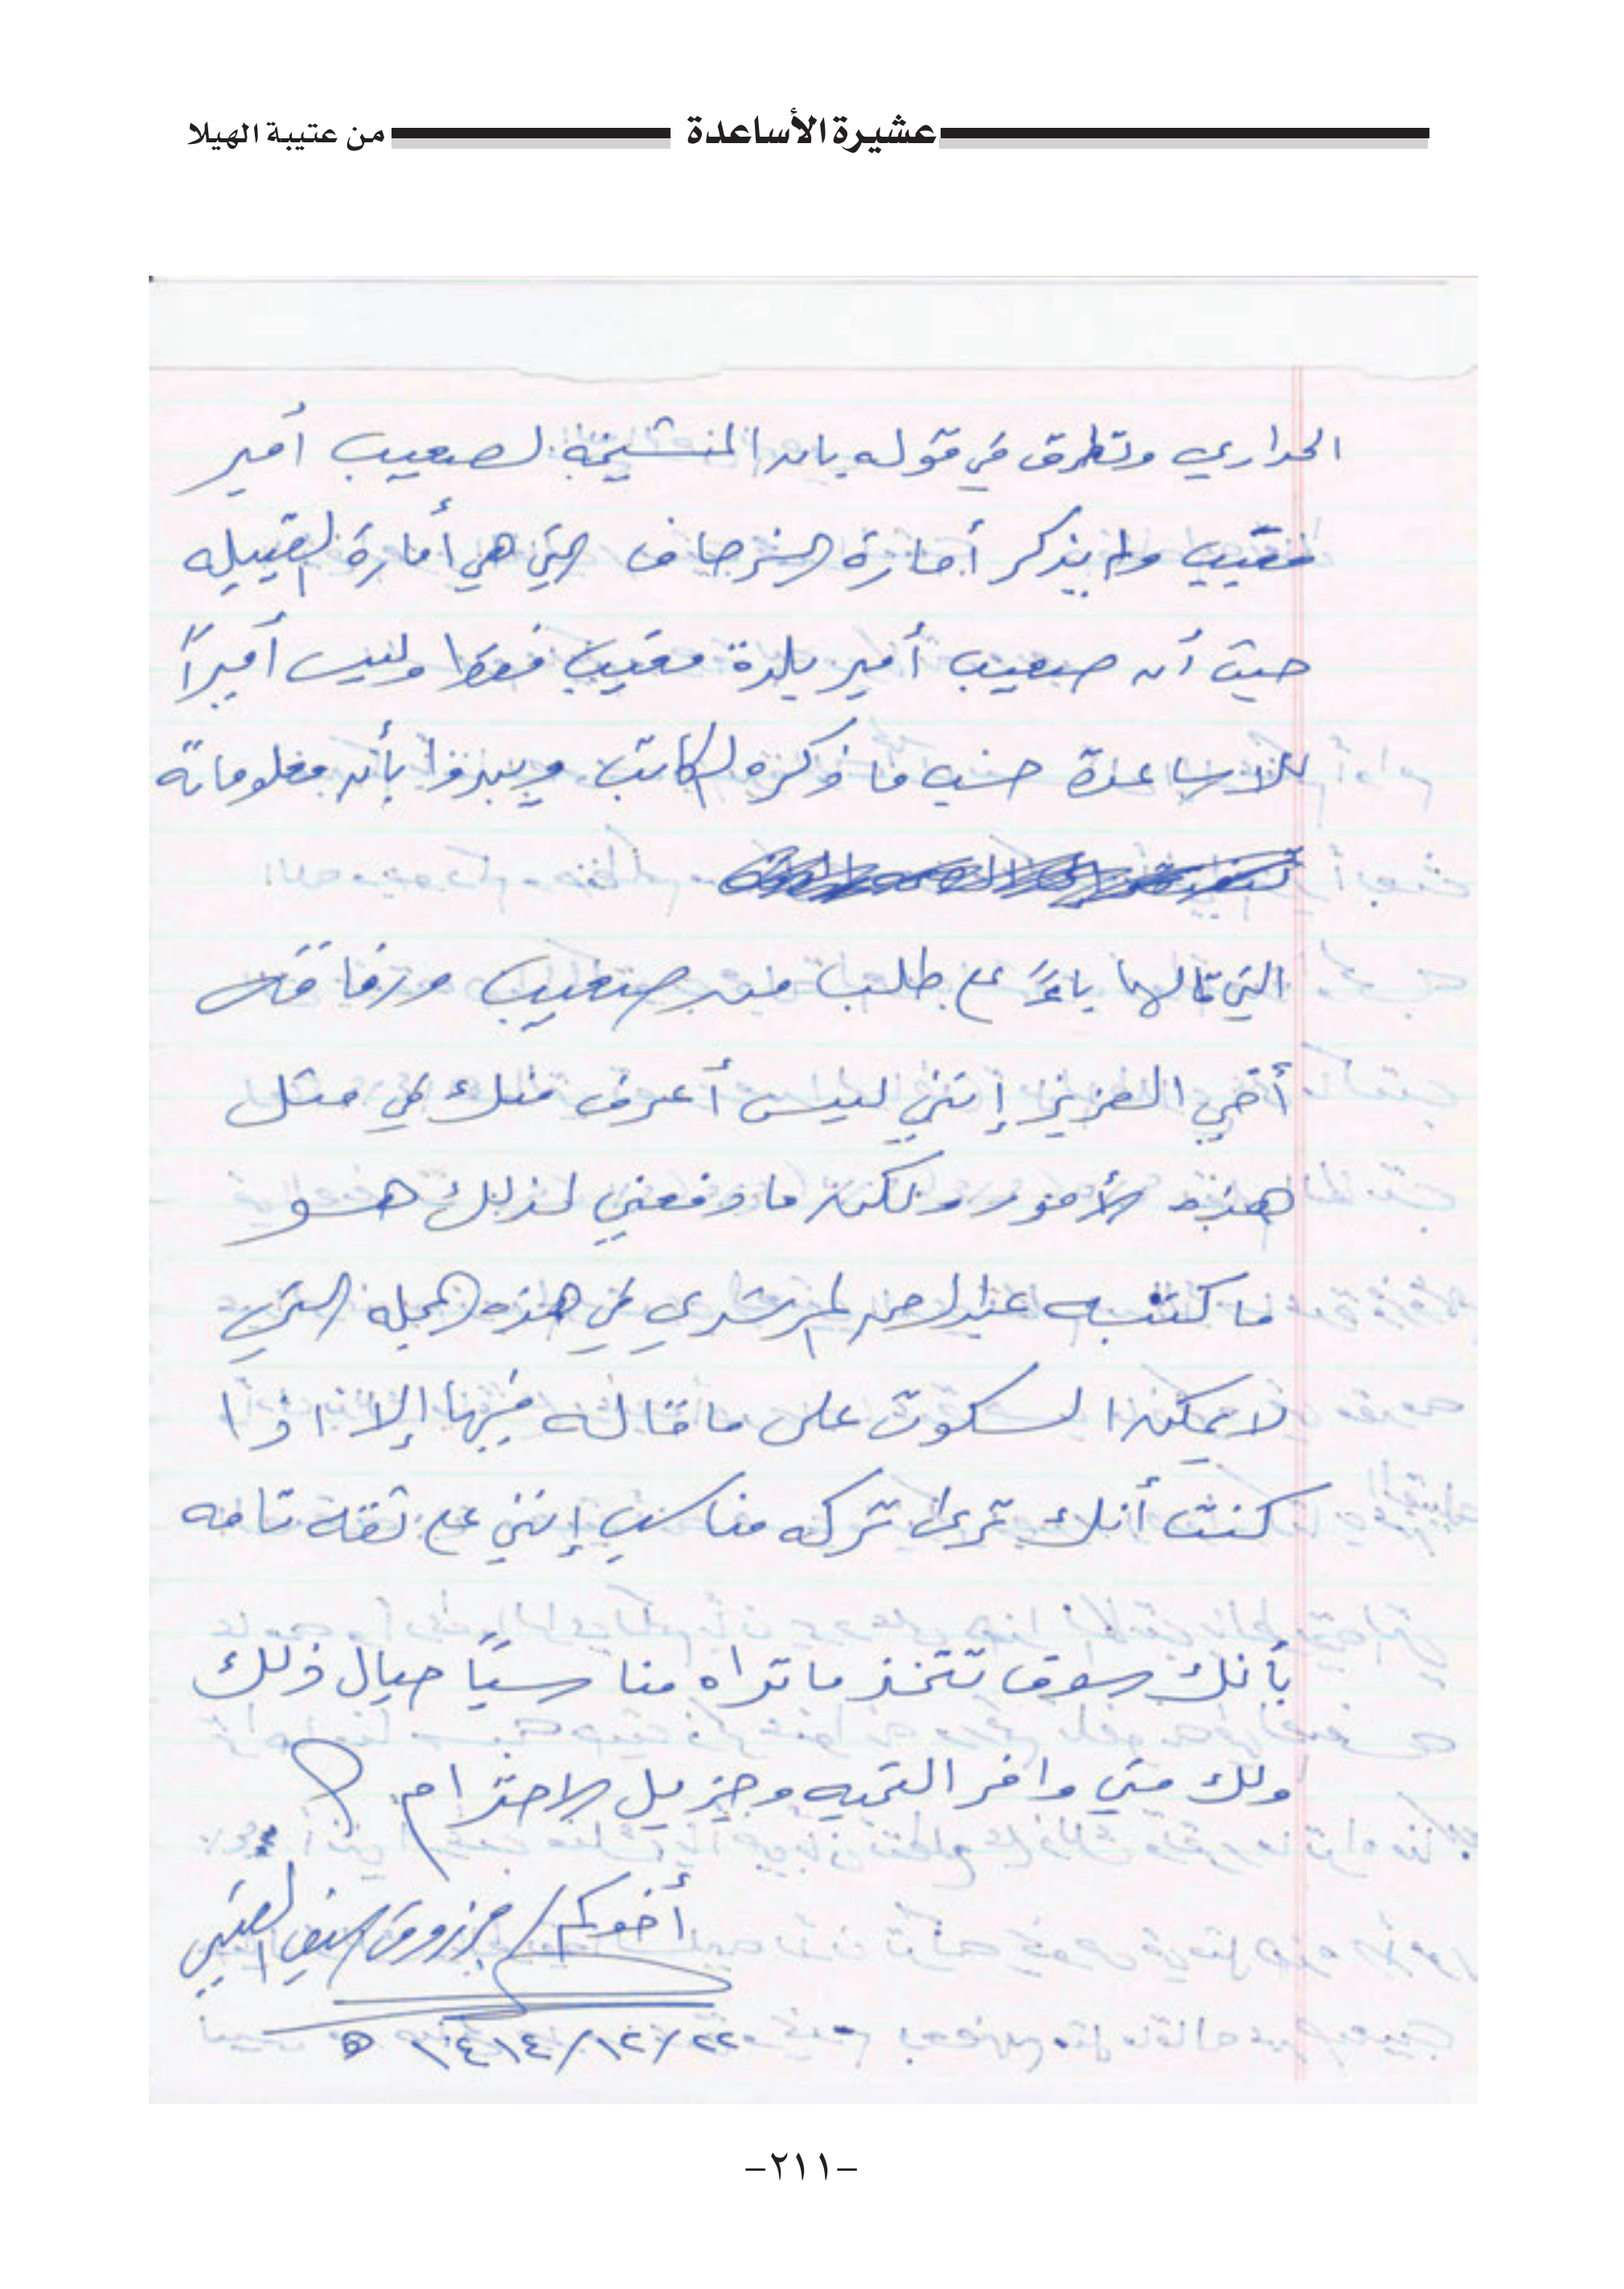 عشيرة الأساعدة من عتيبة الهيلا
الحداري وتطرق في قوله بان لصعيب أمير
فقيب ولم يذكر أمارة التي هي أمارة القبيله
حيث أن صعيب أمير بلدة مقيب فقط وليس أميراً
للاساعدة حسب ما ذكره الكاتب ويبدوا بأن معلوماته
التي قالها باءً على طلب من صعيب ورفاقه
أخي العزيز إنني ليس أعرف منك في مثل
هذه الأمور ولكن ما دفعني لذلك هو
ما كتبه عبدالرحمن المرشدي في هذه المجله التي
لا يمكن السكوت على ما قاله فيها إلا اذا
كنت أنك ترى تركه مناسب إنني على ثقه تامه
بأنك سوف تتخذ ما تراه مناسباً حيال ذلك
ولك مني وافر التحيه وجزيل الاحترام
أخوكم / مرزوق العتيبي
٢٢/١٢/١٤١٤ ه
-٢١١-